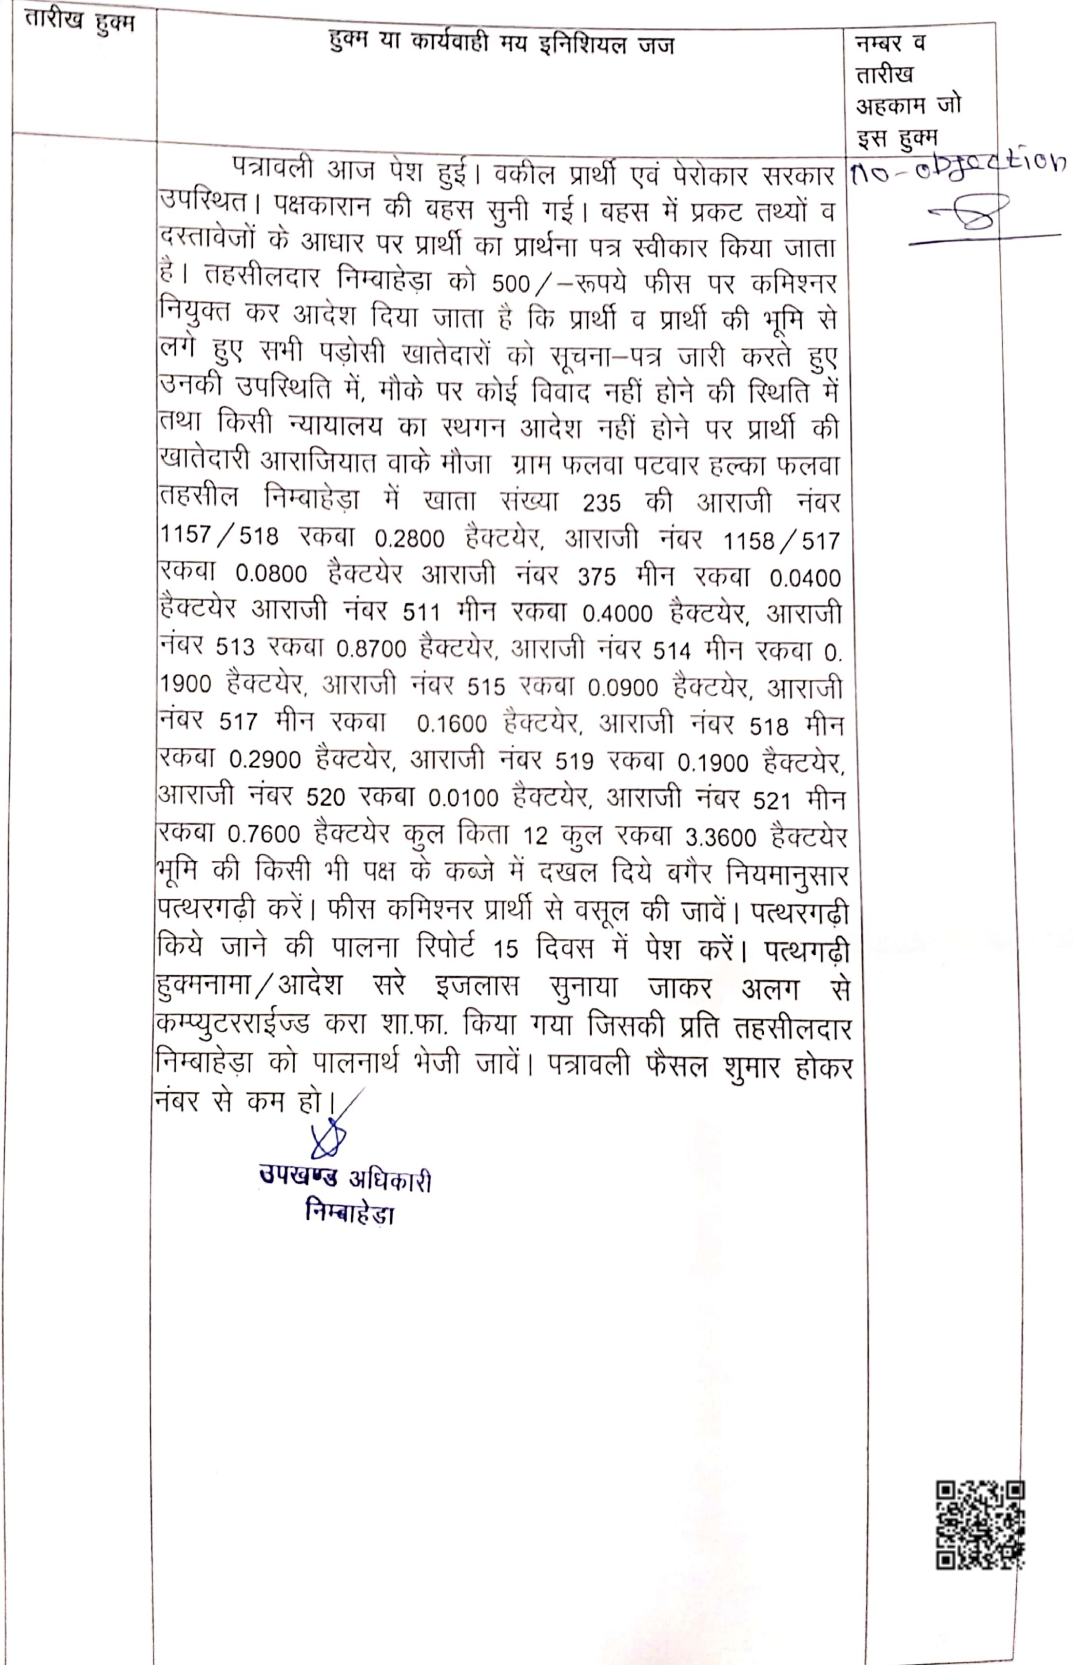 तारीख हुक्म
हुक्म या कार्यवाही मय इनिशियल जज
नम्बर व
तारीख
अहकाम जो
इस हुक्म
no-objection
पत्रावली आज पेश हुई। वकील प्रार्थी एवं पेरोकार सरकार
उपस्थित। पक्षकारान की बहस सुनी गई। बहस में प्रकट तथ्यों व
दस्तावेजों के आधार पर प्रार्थी का प्रार्थना पत्र स्वीकार किया जाता
है। तहसीलदार निम्बाहेड़ा को 500/–रूपये फीस पर कमिश्नर
नियुक्त कर आदेश दिया जाता है कि प्रार्थी व प्रार्थी की भूमि से
लगे हुए सभी पड़ोसी खातेदारों को सूचना–पत्र जारी करते हुए
उनकी उपस्थिति में, मौके पर कोई विवाद नहीं होने की स्थिति में
तथा किसी न्यायालय का स्थगन आदेश नहीं होने पर प्रार्थी की
खातेदारी आराजियात वाके मौजा ग्राम फलवा पटवार हल्का फलवा
तहसील निम्बाहेड़ा में खाता संख्या 235 की आराजी नंबर
1157/518 रकबा 0.2800 हैक्टयेर, आराजी नंबर 1158/517
रकबा 0.0800 हैक्टयेर आराजी नंबर 375 मीन रकबा 0.0400
हैक्टयेर आराजी नंबर 511 मीन रकबा 0.4000 हैक्टयेर, आराजी
नंबर 513 रकबा 0.8700 हैक्टयेर, आराजी नंबर 514 मीन रकबा 0.
1900 हैक्टयेर, आराजी नंबर 515 रकबा 0.0900 हैक्टयेर, आराजी
नंबर 517 मीन रकबा 0.1600 हैक्टयेर, आराजी नंबर 518 मीन
रकबा 0.2900 हैक्टयेर, आराजी नंबर 519 रकबा 0.1900 हैक्टयेर,
आराजी नंबर 520 रकबा 0.0100 हैक्टयेर, आराजी नंबर 521 मीन
रकबा 0.7600 हैक्टयेर कुल किता 12 कुल रकबा 3.3600 हैक्टयेर
भूमि की किसी भी पक्ष के कब्जे में दखल दिये बगैर नियमानुसार
पत्थरगढ़ी करें। फीस कमिश्नर प्रार्थी से वसूल की जावें। पत्थरगढ़ी
किये जाने की पालना रिपोर्ट 15 दिवस में पेश करें। पत्थगढ़ी
हुक्मनामा/आदेश सरे इजलास सुनाया जाकर अलग से
कम्प्युटरराईज्ड करा शा.फा. किया गया जिसकी प्रति तहसीलदार
निम्बाहेड़ा को पालनार्थ भेजी जावें। पत्रावली फैसल शुमार होकर
नंबर से कम हो।
उपखण्ड अधिकारी
निम्बाहेडा